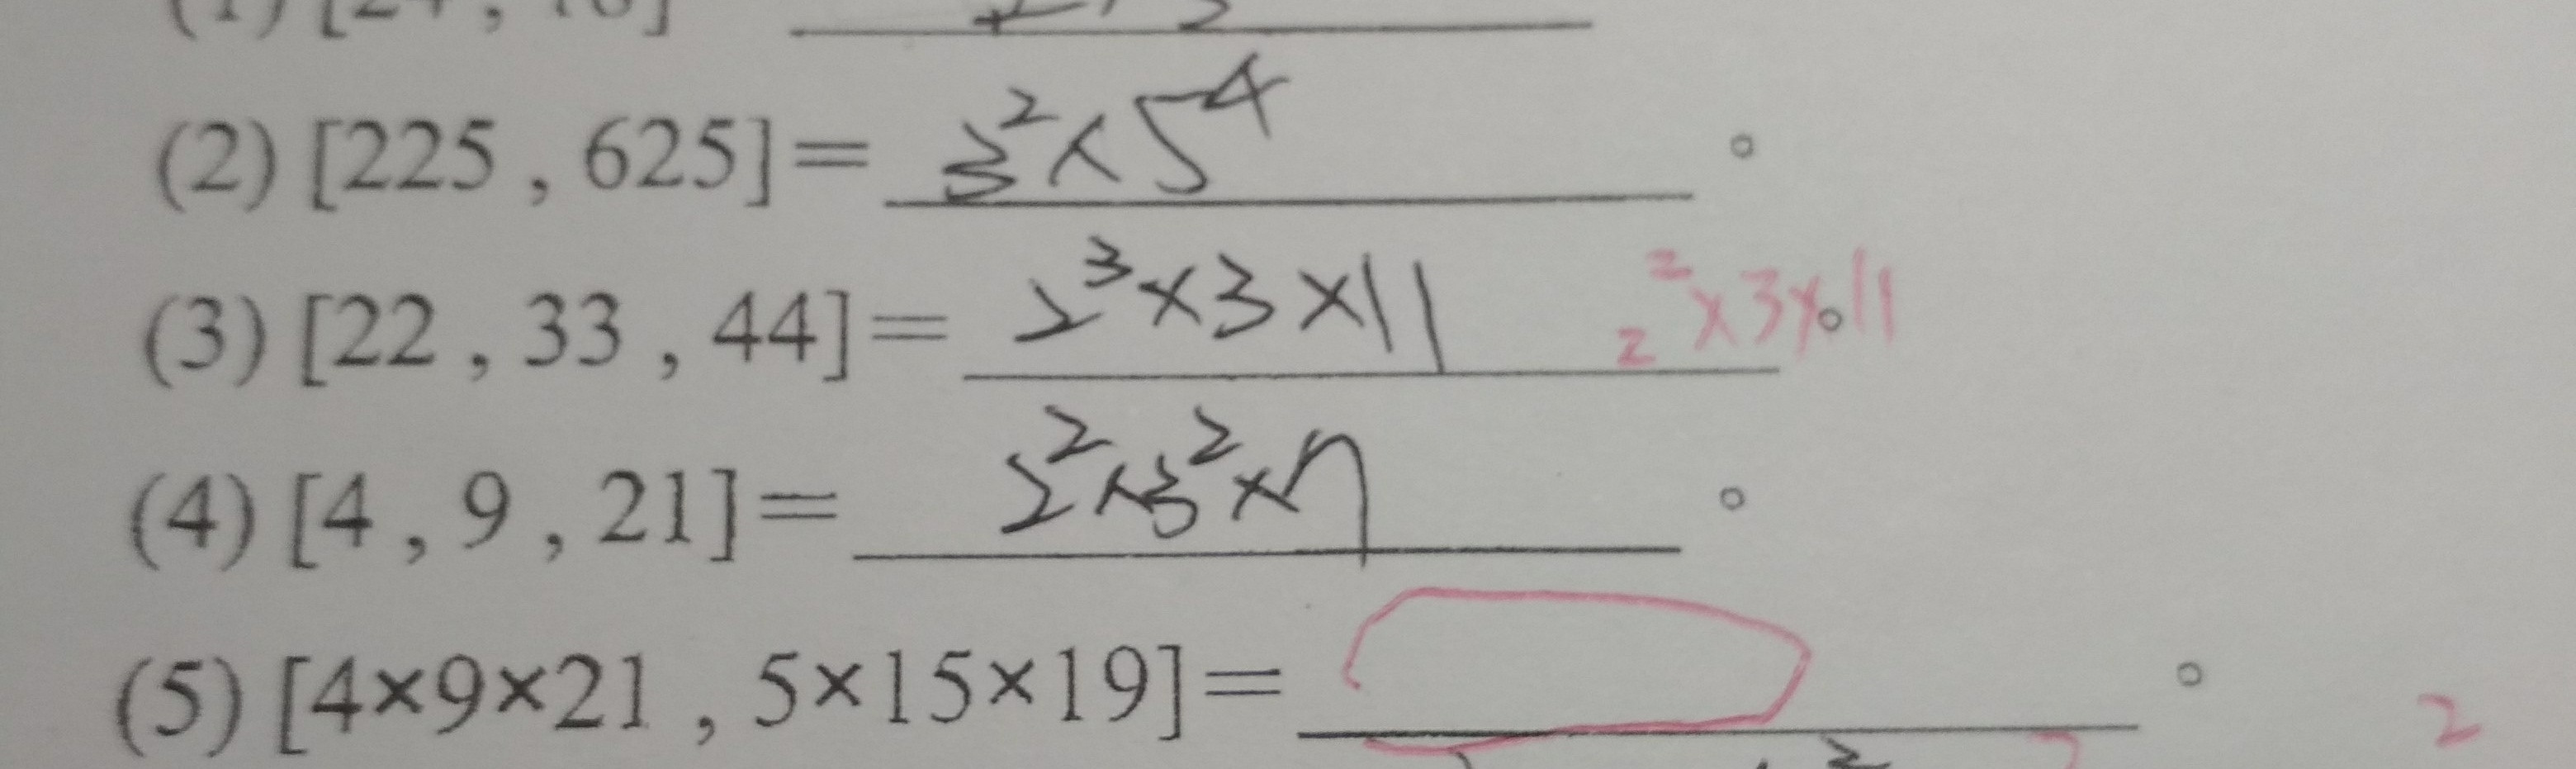 (2) [225 , 625]= 3²×5⁴ 。
(3) [22 , 33 , 44]= 2³×3×11 。 2²×3×11
(4) [4 , 9 , 21]= 2²×3²×7 。
(5) [4×9×21 , 5×15×19]= 。
2